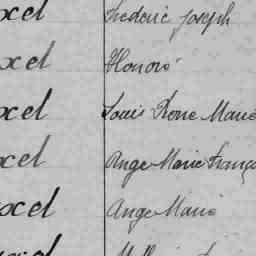 xel Frederic Joseph
xel Honoré
xel Louis Rene Marie
xel Ange Marie Franço
xel Ange Marie